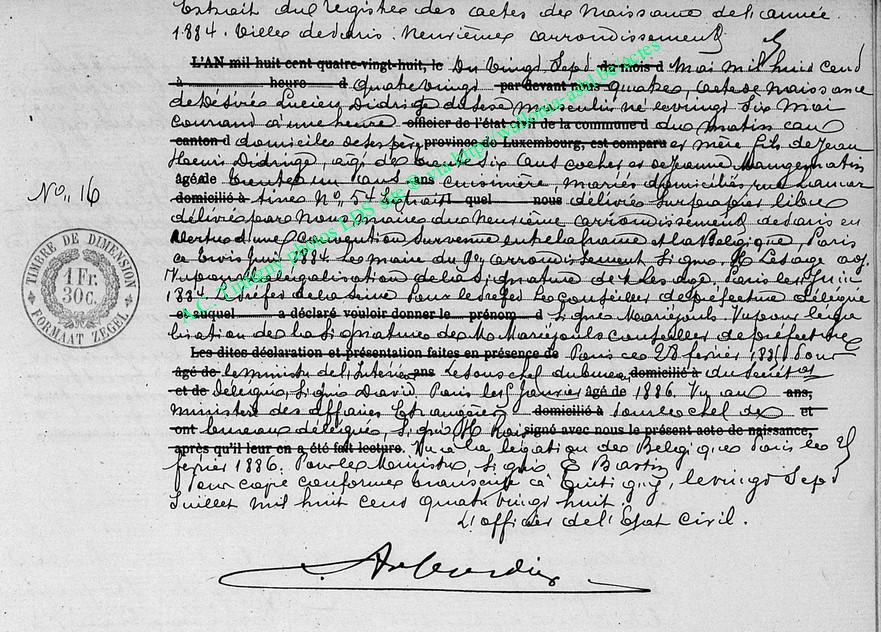 Extrait du registre des actes de naissance de l'année
1884. Ville de Paris. Neuvième arrondissement
L'AN mil huit cent quatre-vingt-huit, le Du vingt sept du mois d Mai mil huit cent
à heure d quatre vingt par devant nous quatre, acte de naissance
de Désiré Lucien Didrige de sexe masculin né le vingt six Mai
courant à une heure officier de l'état civil de la commune d du matin au
canton d domicile de ses père province de Luxembourg, est comparu et mère fils de Jean
Henri Didrige, agé de trente six ans cocher et de Jeanne
âgé de trente un ans ans cuisinière, mariés domiciliés rue
domicilié à N° 54 Extrait l quel nous délivré sur papier libre
délivré par Nous maire du Neuvième arrondissement de Paris en
vertu d'une convention survenue entre la france et la Belgique, Paris
ce trois Juin 1884. Le maire du 9e arrondissement Signé. H. Lesage adj.
Vu pour légalisation de la Signature de M Lesage, Paris le Juin
1884 Préfet de la Seine Pour le Préfet Le Conseiller de Préfecture délégué
et auquel a déclaré vouloir donner le prénom d Signé Mariéjouls. Vu pour léga
lisation de la Signature de M Mariéjouls conseiller de préfecture
Les dites déclaration et présentation faites en présence de Paris ce 28 février Pour
âgé de le ministre de l'Intérieur ans Le Sous chef du bureau domicilié à du Secrét
et de Délégué, Signé David. Paris le 5 Janvier âgé de 1886. Vu au ans,
ministère des affaires Etrangères domicilié à Pour le chef de et
ont bureau délégué, Signé H signé avec nous le présent acte de naissance,
après qu'il leur en a été fait lecture. Vu à la légation de Belgique Paris le
février 1886. Pour le Ministre, Signé E Bastin
Pour copie conforme transcrite à Tintigny, le vingt Sept
Juillet mil huit cent quatre vingt huit
L'officier de l'Etat Civil.
N° 16
TIMBRE DE DIMENSION
1 Fr.
30c.
FORMAAT ZEGEL
A.C. Tintigny photos LDS site © via http://wallonia-asbl.be/actes